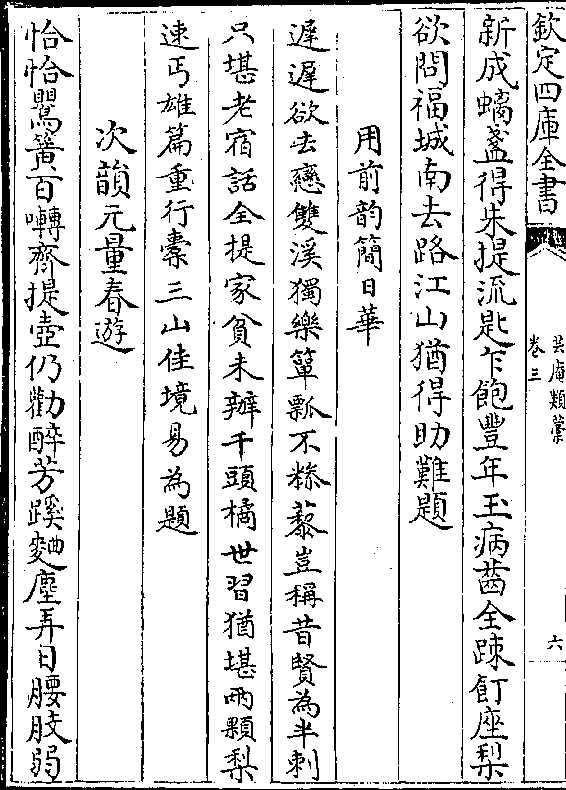 欽定四庫全書
卷三
六
新成螭盞得朱提流匙乍飽豐年玉病齒全踈飣座梨
欲問福城南去路江山猶得助難題
用前韵簡日華
遲遲欲去戀雙溪獨樂簞瓢不糝藜豈稱昔賢為半刺
只堪老宿話全提家貧未辦千頭橘世習猶堪兩顆梨
速丐雄篇重行橐三山佳境易為題
次韻元量春遊
恰恰鸎簧百囀齊提壺仍勸醉芳蹊麯塵弄日腰肢弱